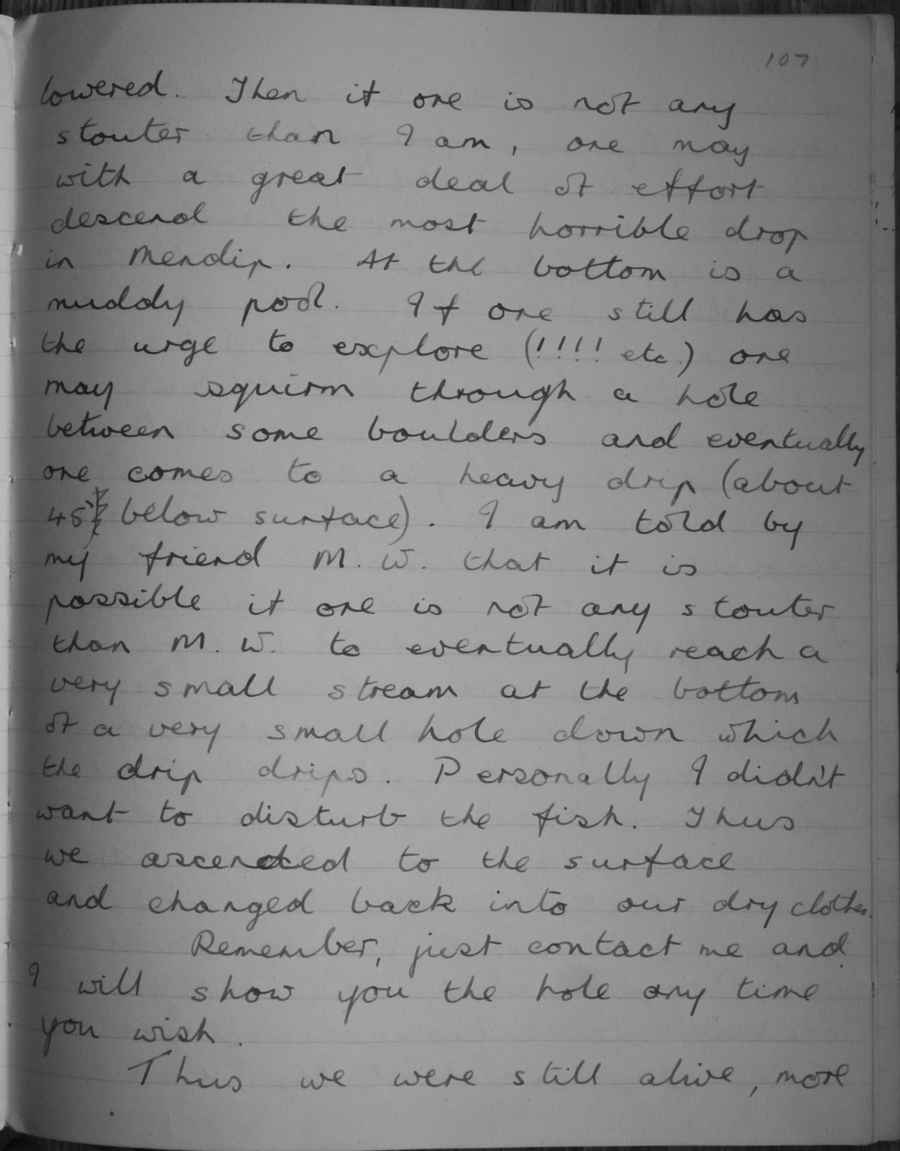 107
lowered. Then if one is not any
stouter than I am, one may
with a great deal of effort
descend the most horrible drop
in Mendip. At the bottom is a
muddy pool. If one still has
the urge to explore (!!!! etc.) one
may squirm through a hole
between some boulders and eventually
one comes to a heavy drip (about
45' below surface). I am told by
my friend M. W. that it is
possible if one is not any stouter
than M. W. to eventually reach a
very small stream at the bottom
of a very small hole down which
the drip drips. Personally I didn't
want to disturb the fish. Thus
we ascended to the surface
and changed back into our dry clothes.
Remember, just contact me and
I will show you the hole any time
you wish.
Thus we were still alive, more